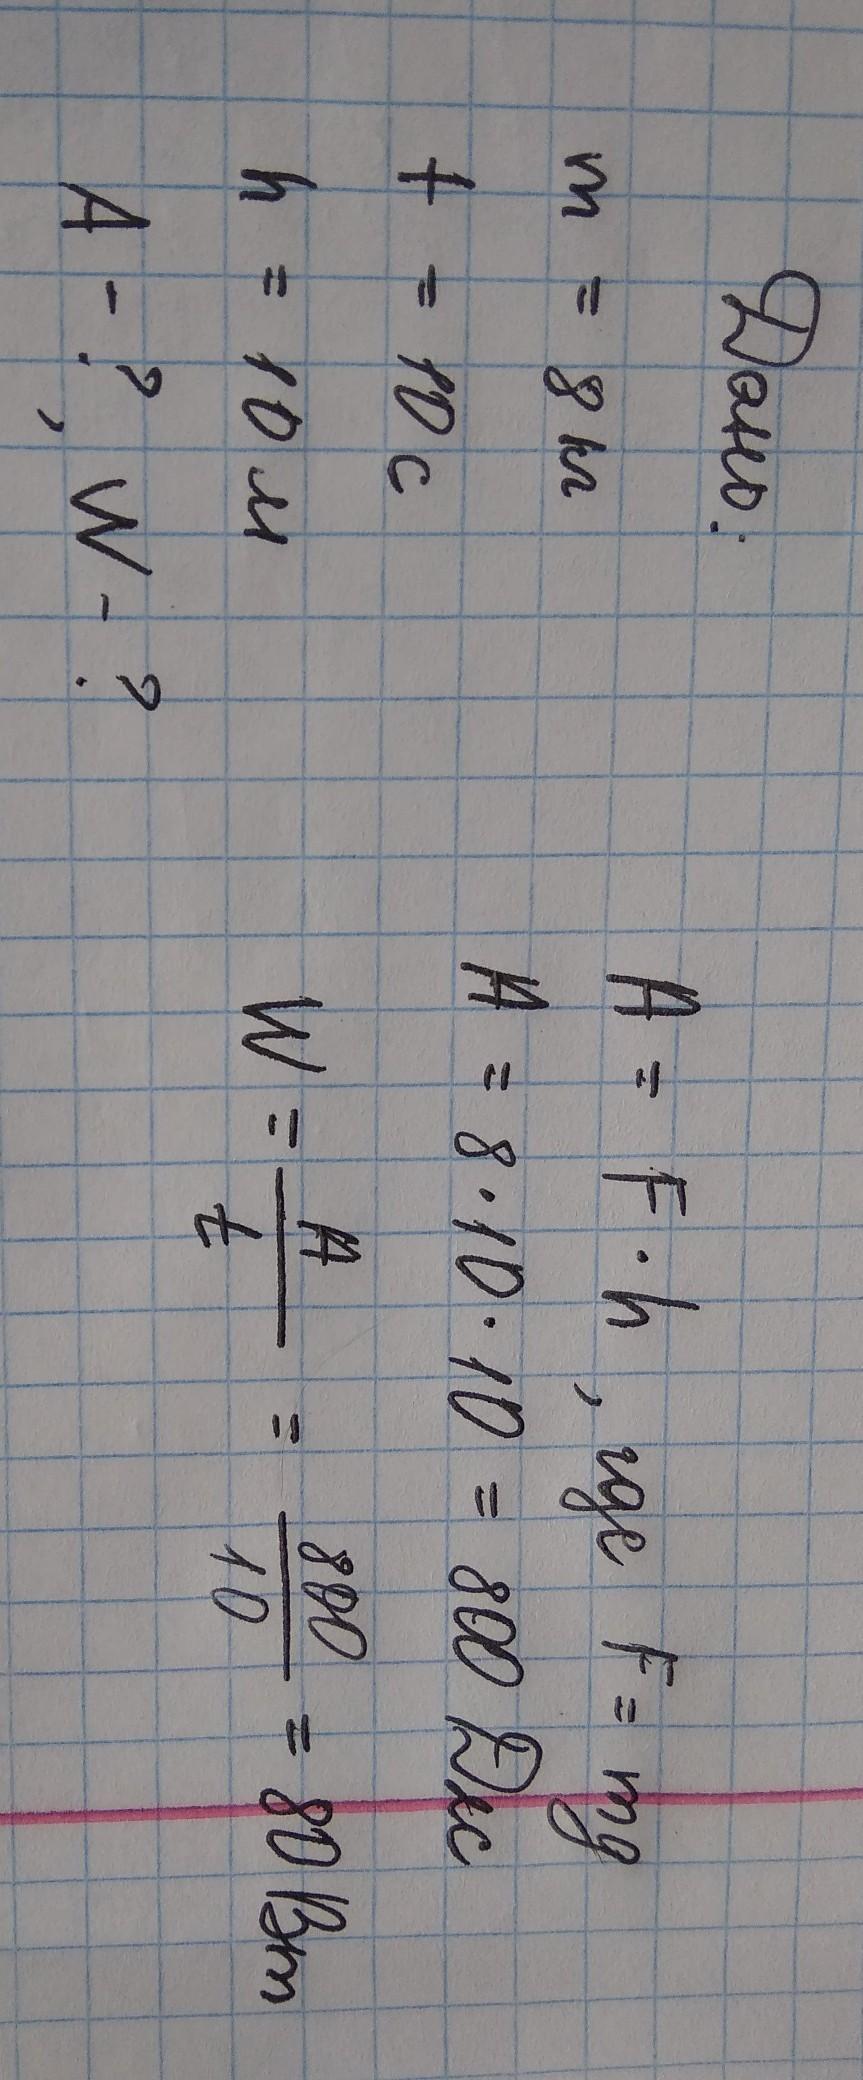 Дано:
m = 8 кг
t = 10 с
h = 10 м
A - ?, W - ?
A = F · h, где F = mg
A = 8 · 10 · 10 = 800 Дж
W = A/t = 800/10 = 80 Вт